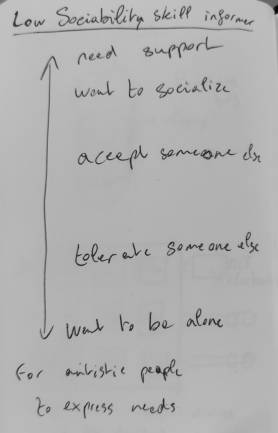 Low Sociability skill informer
need support
want to socialize
accept someone else
tolerate someone else
want to be alone
For autistic people
to express needs